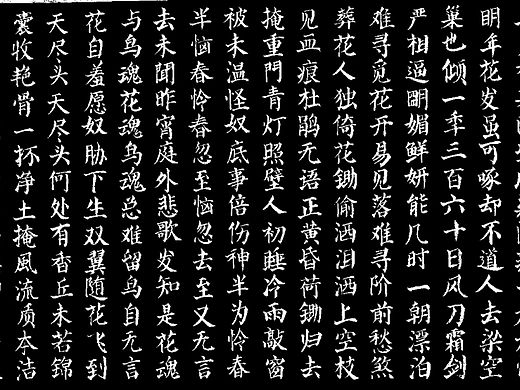 明年花发虽可啄却不道人去梁空
巢也倾一年三百六十日风刀霜剑
严相逼明媚鲜妍能几时一朝漂泊
难寻觅花开易见落难寻阶前愁煞
葬花人独倚花锄偷洒泪洒上空枝
见血痕杜鹃无语正黄昏荷锄归去
掩重門青灯照壁人初睡冷雨敲窗
被未温怪奴底事倍伤神半为怜春
半恼春怜春忽至恼忽去至又无言
去未聞昨宵庭外悲歌发知是花魂
与鸟魂花魂鸟魂总难留鸟自无言
花自羞愿奴胁下生双翼随花飞到
天尽头天尽头何处有香丘未若錦
囊收艳骨一抔净土掩風流质本洁